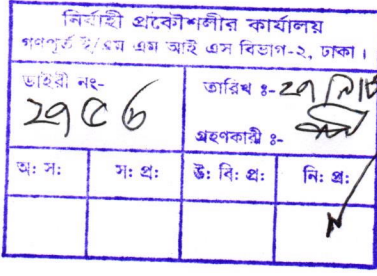 নির্বাহী প্রকৌশলীর কার্যালয়
গণপূর্ত ই/এম এম আই এস বিভাগ-২, ঢাকা।
ডাইরী নং- তারিখ ঃ-
২৭৫৬
গ্রহণকারী ঃ-
অ: স: স: প্র: উ: বি: প্র: নি: প্র: